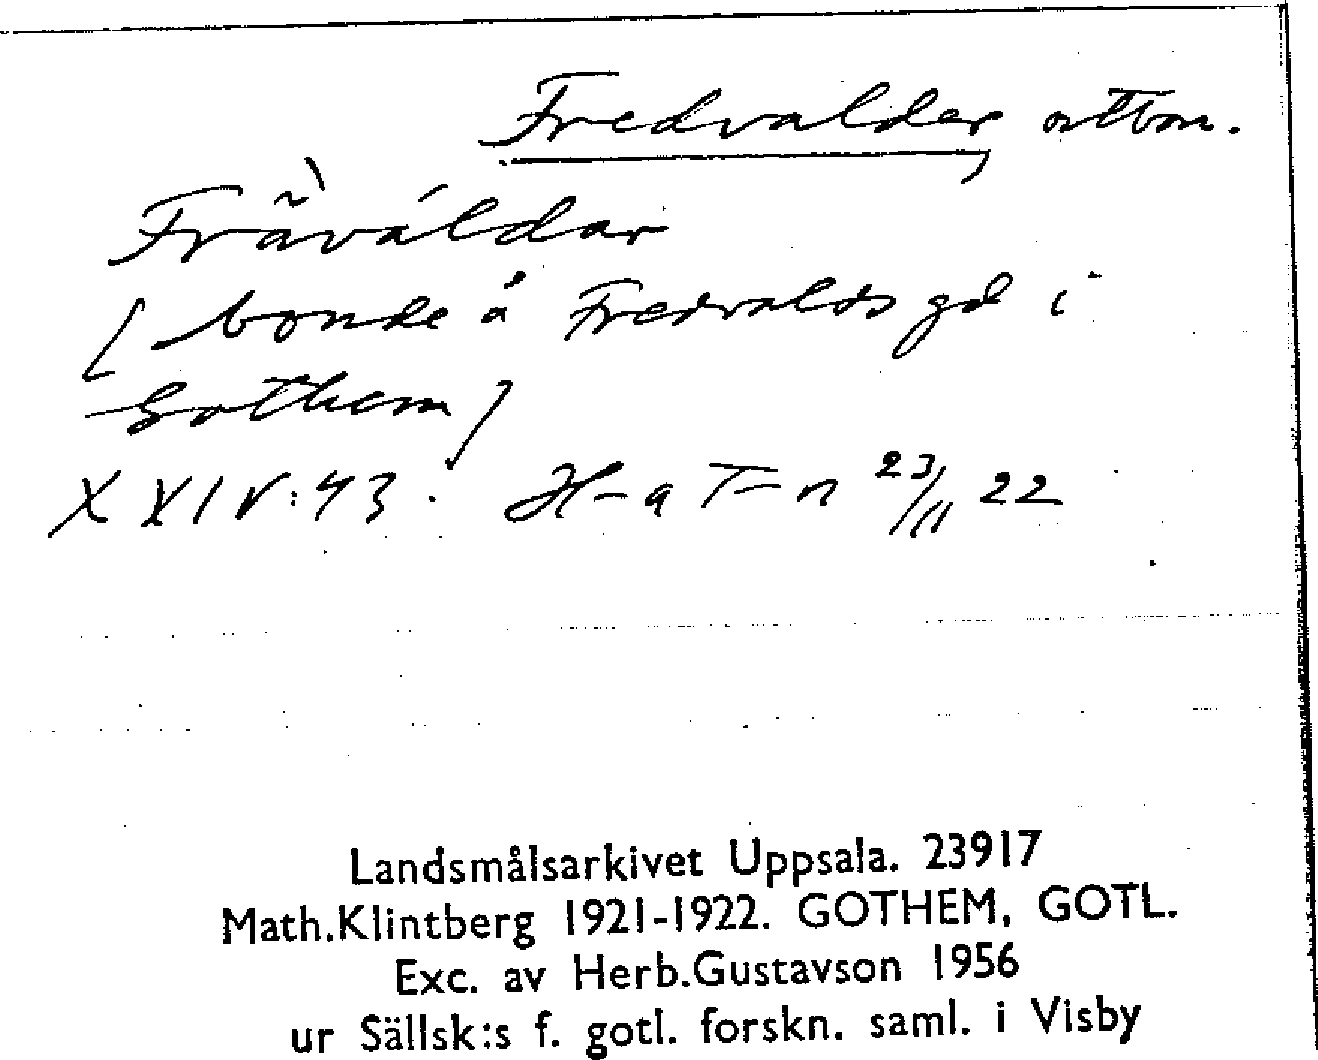 Fredvalder,
Frã̀váldar
[ bonde å Fredvalds gd i
Gothem]
XXIV:43. H-a T-n 23/11 22
Landsmålsarkivet Uppsala. 23917
Math.Klintberg 1921-1922. GOTHEM, GOTL.
Exc. av Herb.Gustavson 1956
ur Sällsk:s f. gotl. forskn. saml. i Visby